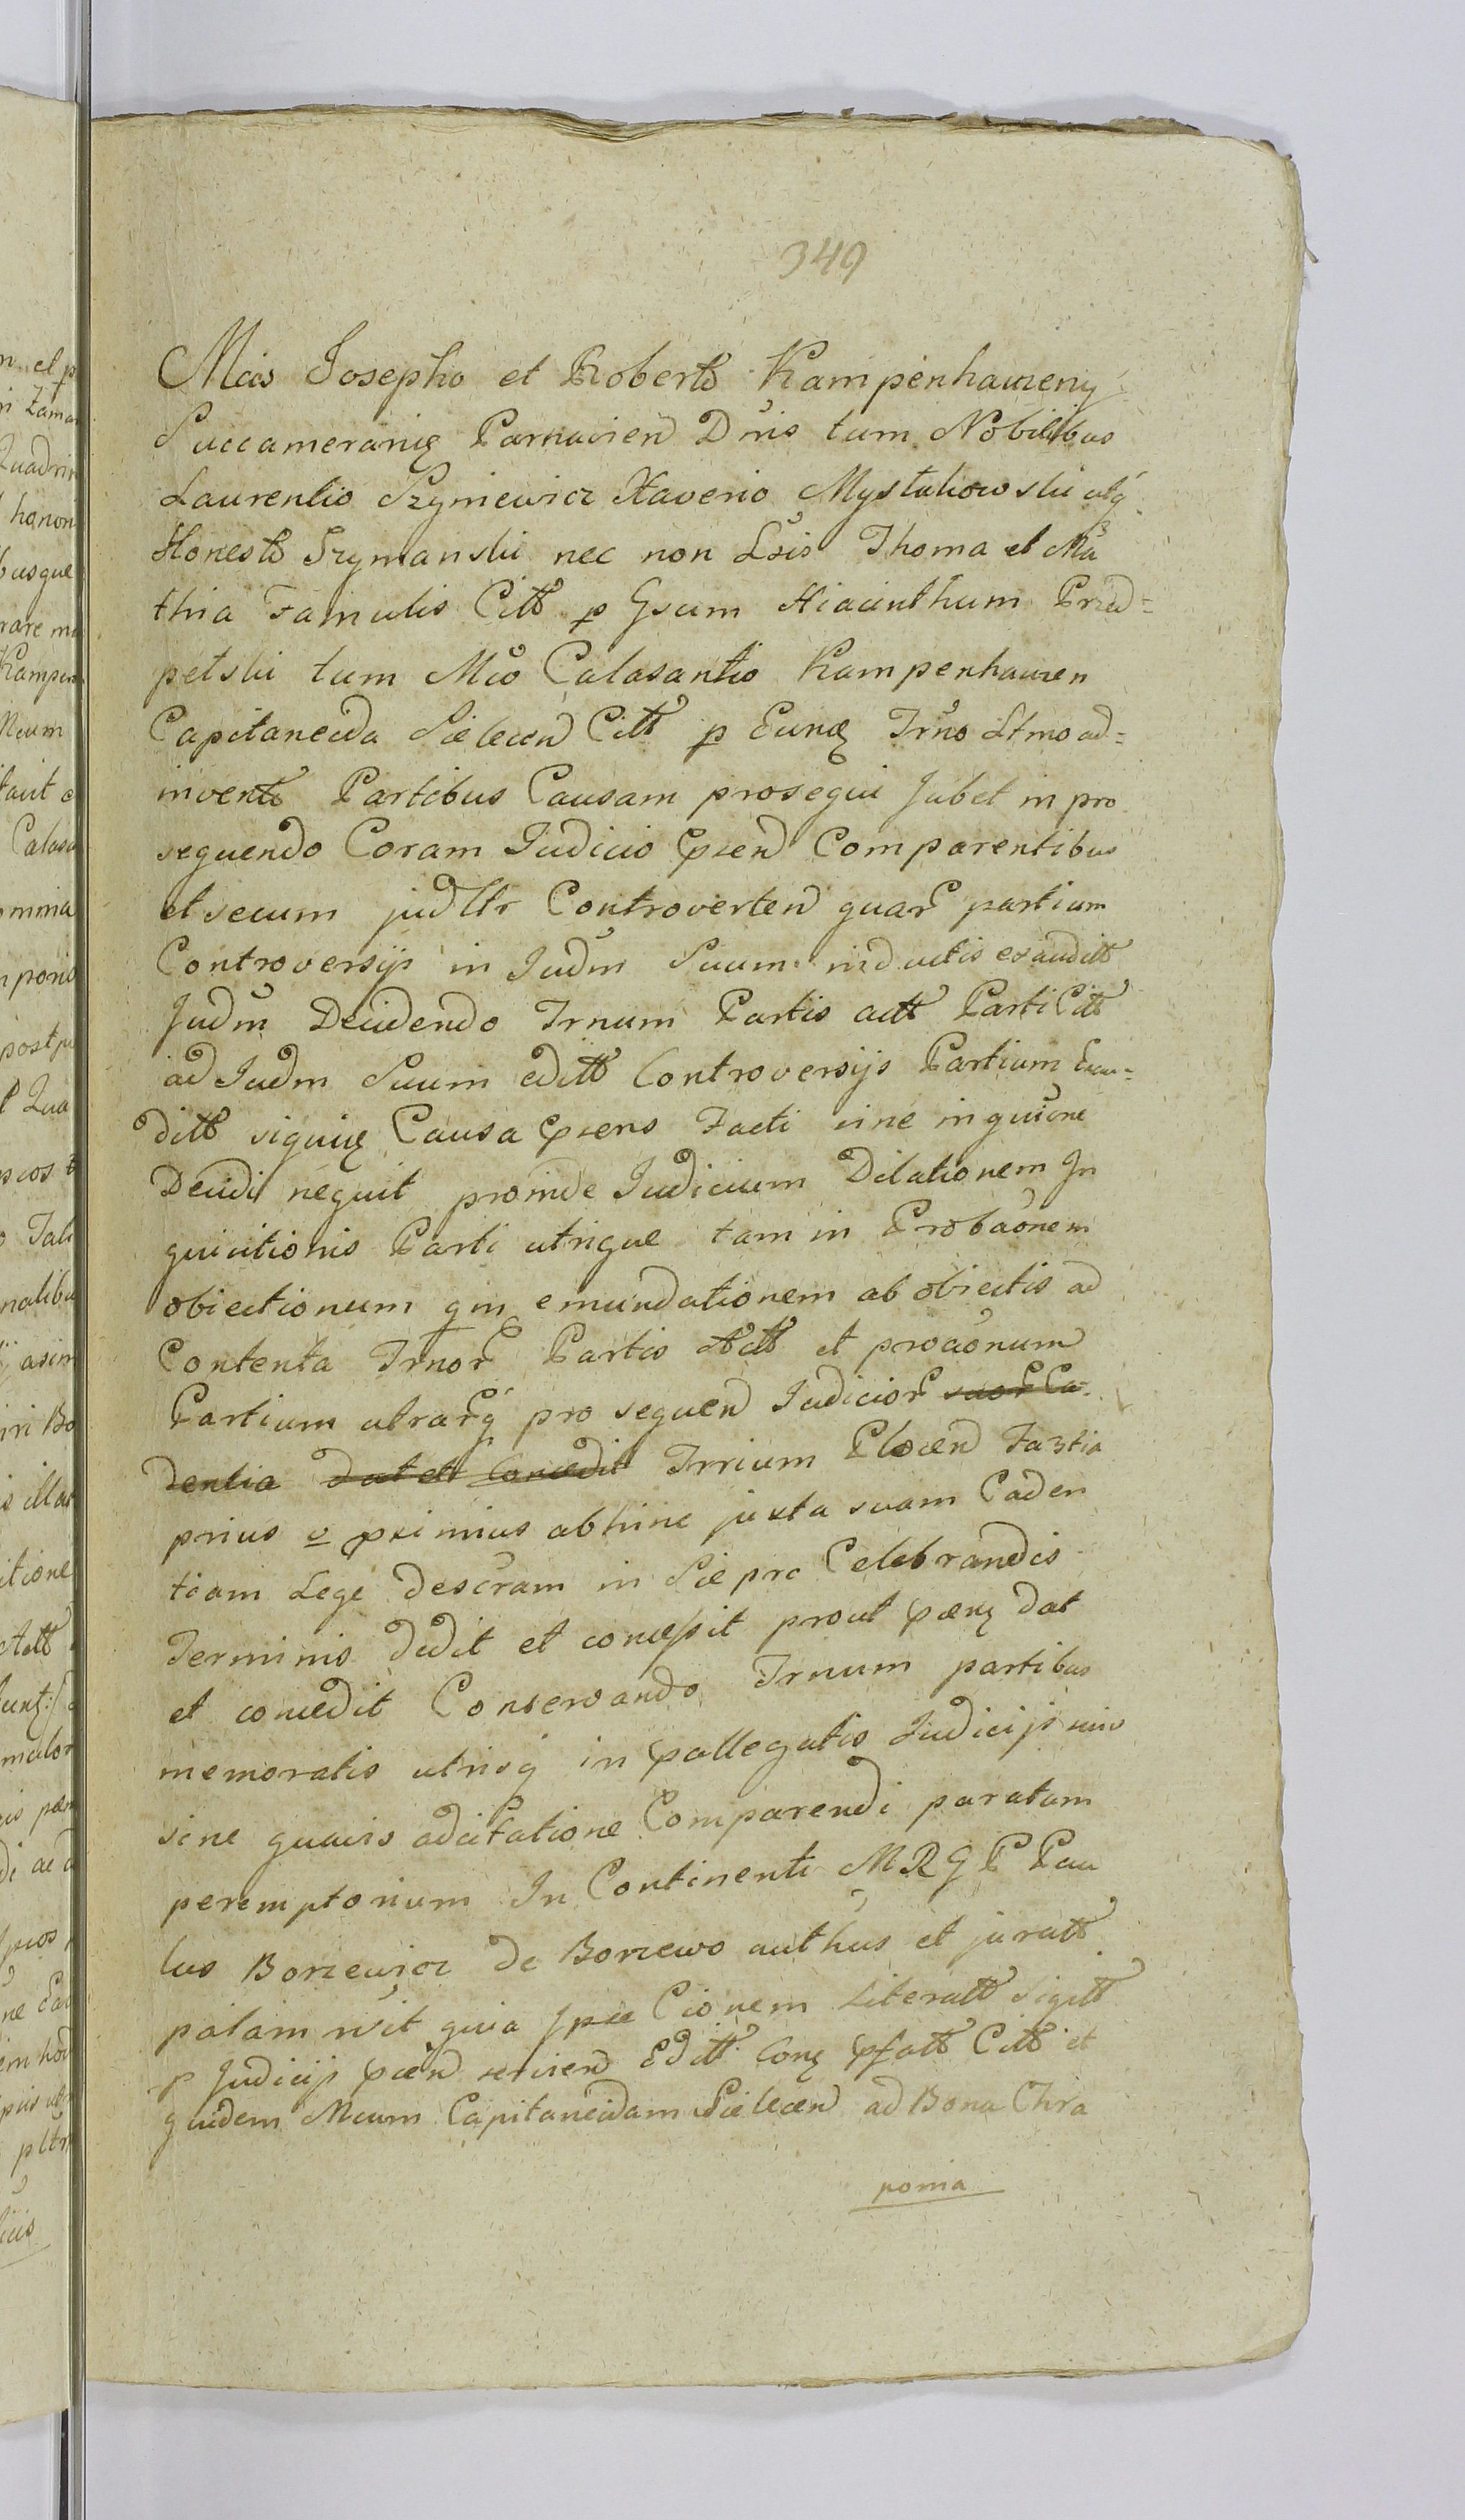 349
Mcis Josepho et Roberto Kampenhauzeny
Succameranię Parnavien Dnis tum Nobilibus
Laurentio Szyniewicz Xaverio Mystukowski atq
Honesto Szymanski nec non Lsis Thoma et Ma
thia Famulis Citt p Gsum Hiacinthum Przed=
petski tum Mco Calasantio Kampenhauzen
Capitaneida Sielecen Citt p Eunę Trno Ltmo ad=
invent Partibus Causam prosequi Jubet in pro
sequendo Coram Judicio psen Comparentibus
et secum judltr Controverten quar partium
Controversijs in Judm Suum inductis exauditt
Judm Decidendo Trnum Partis actt Parti Citt
ad Judm Suum editt Controversijs Partium Exau=
ditt siquię Causa psens Facti sine inquione
Decidi nequit proinde Judicium Dilationem In
quisitionis Parti utrique tam in Probaonem
obiectionum qm emundationem ab obiectis ad
Contenta Trnor Partis Actt et proaonum
Partium utrarq pro sequen Judicior suor Ca=
dentia dat et Concedit Trrium Plocen Fastia
prius v primius abhinc juxta suam Caden
tiam Lege descram in Sieprc Celebrandis
Terminis dedit et concessit prout psenę dat
et concedit Conservando Trnum partibus
memoratis utrisq in pallegatis Judicijs suis
sine quavis adcitatione Comparendi paratum
peremptorium In Continenti M R G P Pau
lus Borzewicz de Borzewo authus et juratt
palam rvit quia Ipse Cionem Literatt Sigitt
p Judicijs psen servien Editt Conę pfatt Citt et
quidem Mcum Capitaneidam Sielecen ad Bona Chra
ponia